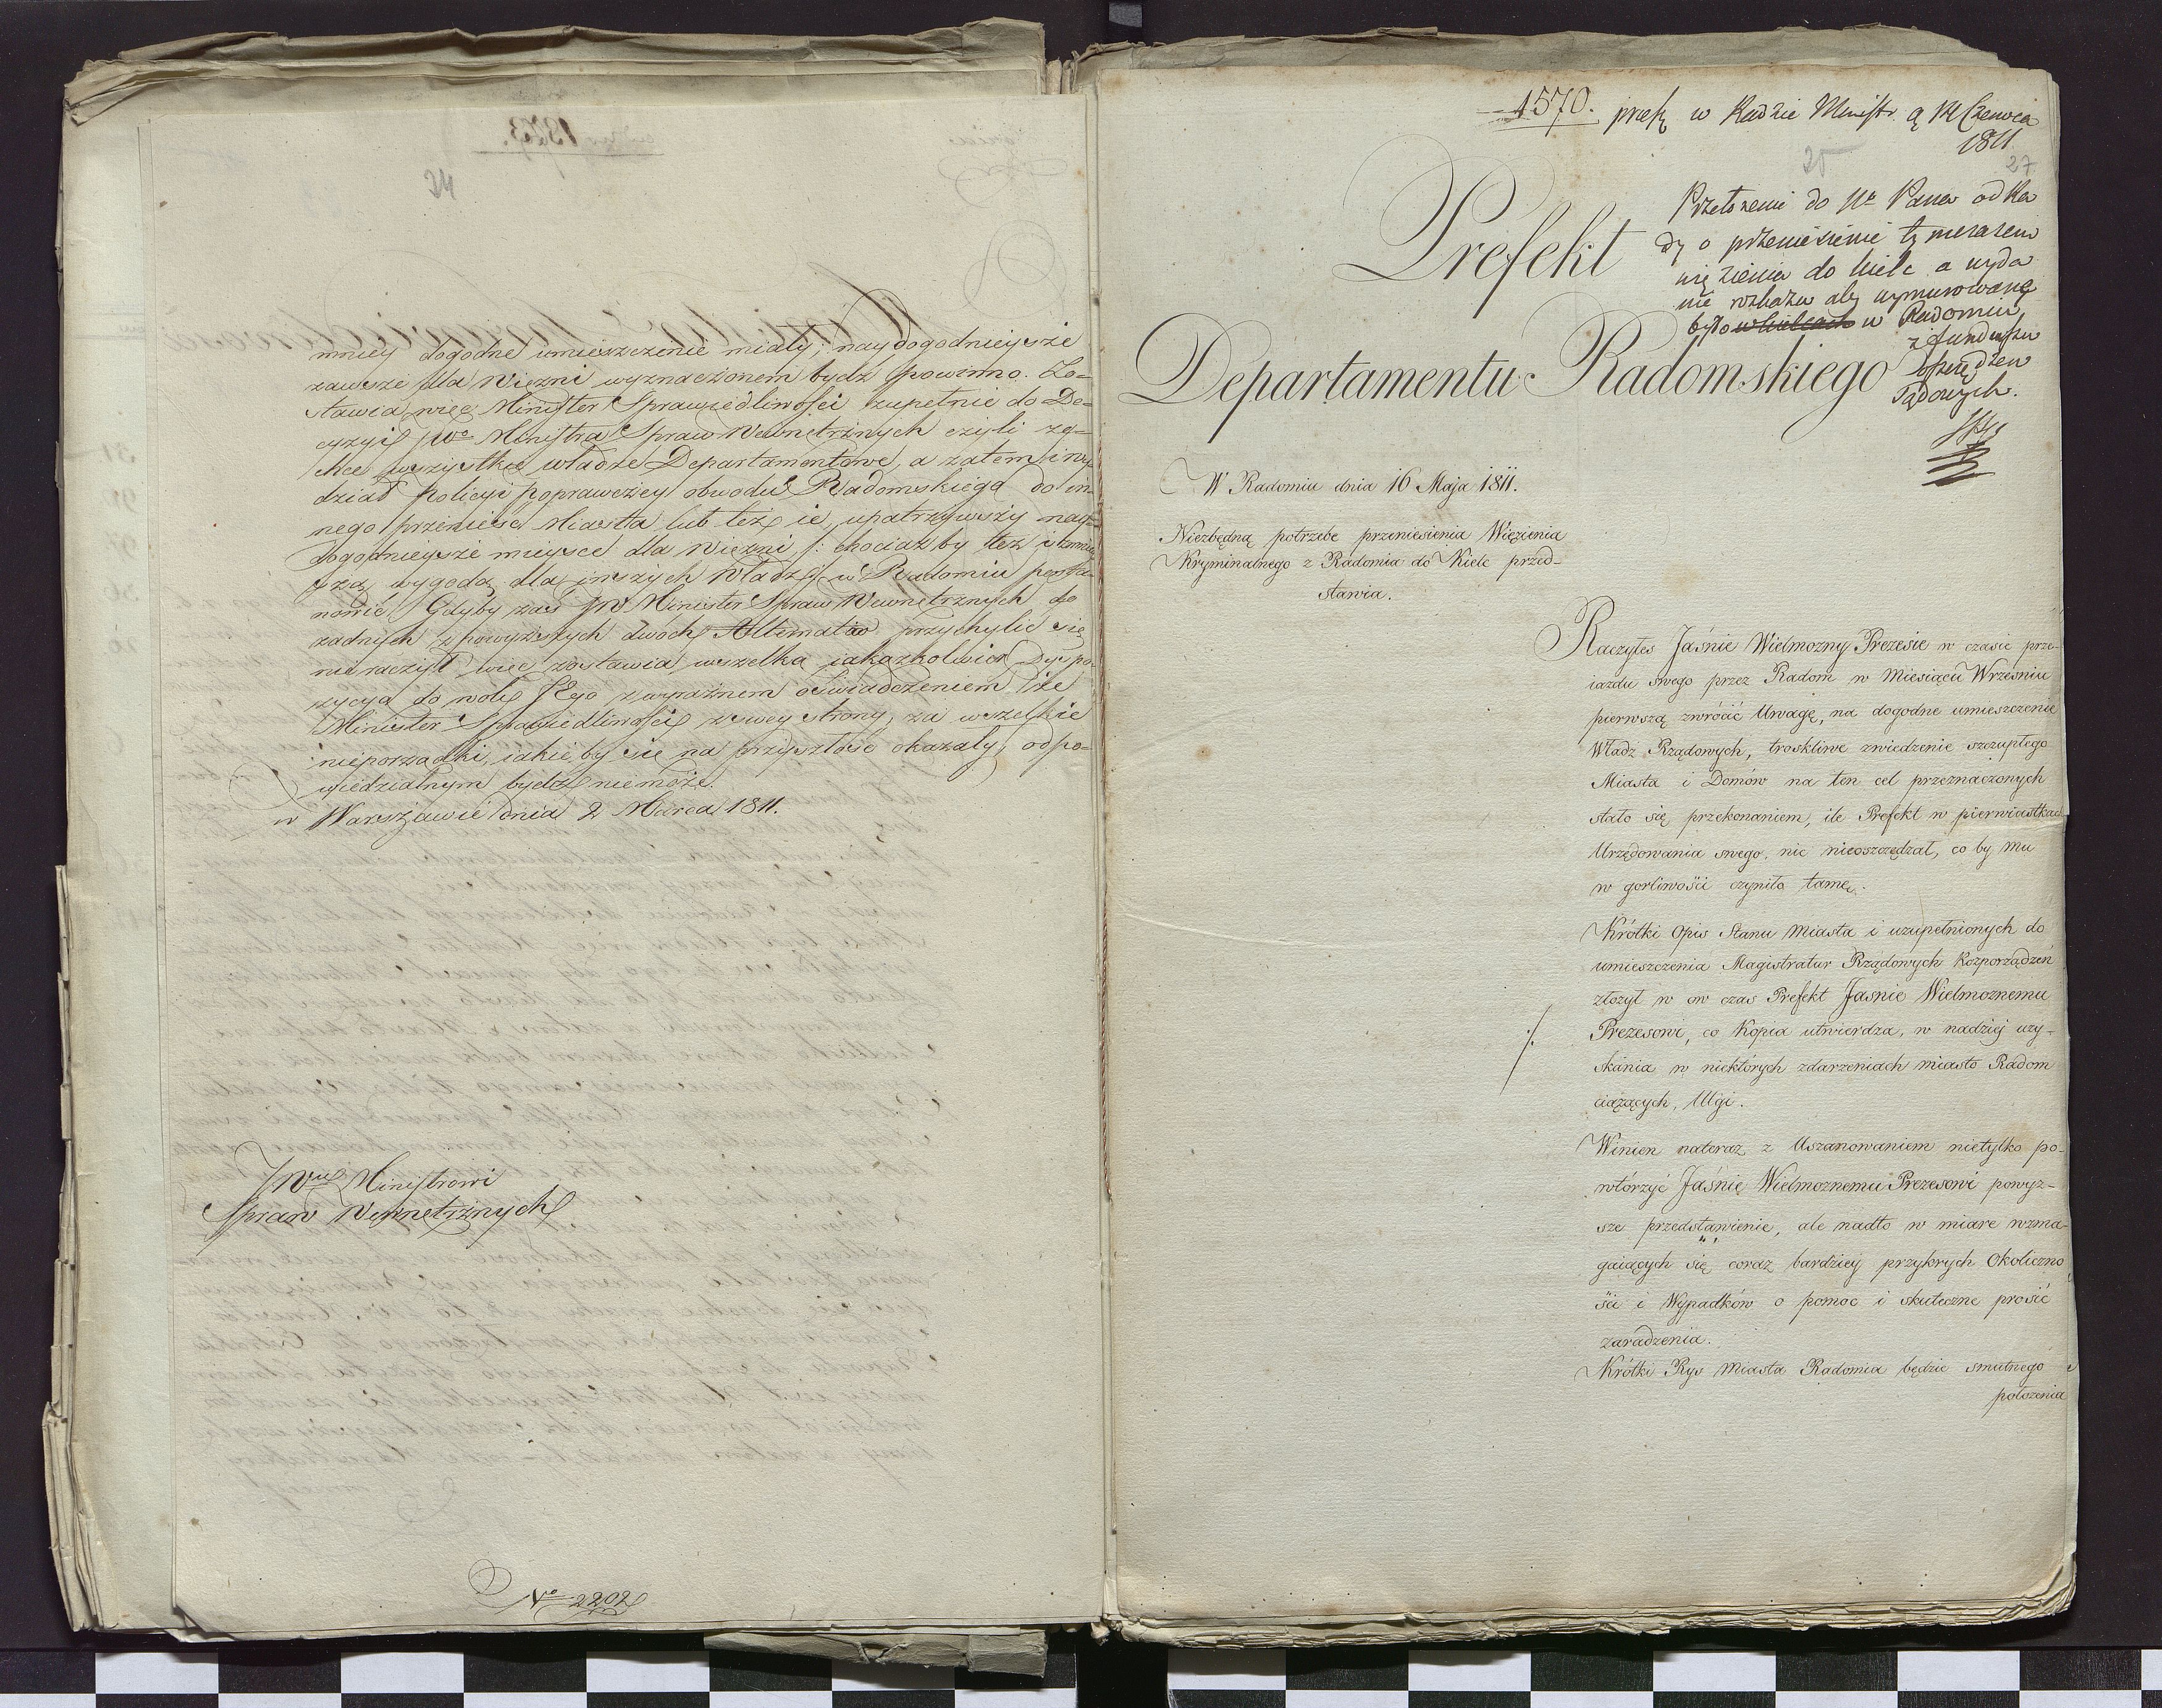 24
mniey dogodne umieszczenie miały; naydogodnieysze
zawsze dla Więzni wyznaczonem bydź powinno. Zo-
stawia więc Minister Sprawiedliwości zupełnie do De-
cyzyi JWo Ministra Spraw Wewnętrznych czyli ze-
chce wszystkie władze Departamentowe, a zatem i wy
dział Policyi poprawczey obwodu Radomskiego do in-
nego przenieść Miasta lub też ie, upatrzywszy nay-
dogodnieysze mieysce dla Więzni /: chociażby też z mniey
szą wygodą dla inszych Władz :/ w Radomiu posta-
nowić. Gdyby zaś JW Minister Spraw Wewnętrznych do
żadnych z powyższych dwóch Alternatiw przychylić się
nie raczył więc zostawia wszelką jakążkolwiek Dyspo-
zycyą do woli Jego z wyraźnem oświadczeniem iże
Minister Sprawiedliwości z swey strony, za wszelkie
nieporządki, iakie by się na przyszłość okazały, odpo-
wiedzialnym bydź niemoże.
w Warszawie dnia 2 Marca 1811.
JWmu Ministrowi
Spraw Wewnętrznych
No 2202
1570. w Radzie Ministr. Czerwca
1811
25
27
Przełożenie do Pana od Ra
dy o przeniesienie tymczasem
więzienia do Kielc a wyda
nie rozkazu aby wymurowane
było w Kielcach w Radomiu
z funduszu
Sądowych.
Prefekt
Departamentu Radomskiego
W Radomiu dnia 16 Maja 1811.
Niezbędną potrzebę przeniesienia Więzienia
Kryminalnego z Radomia do Kielc przed-
stawia.
Raczyłeś Jaśnie Wielmożny Prezesie w czasie prze-
iazdu swego przez Radom w Miesiącu Wrześniu
pierwszą zwrócić Uwagę, na dogodne umieszczenie
Władz Rządowych, troskliwe zwiedzenie szczupłego
Miasta i Domów na ten cel przeznaczonych
stało się przekonaniem, ile Prefekt w pierwiastkach
Urzędowania swego, nic nieoszczędzał, co by mu
w gorliwości czyniło tamę.
Krótki Opis Stanu Miasta i uzupełnionych do
umieszczenia Magistratur Rządowych Rozporządzeń
złożył w ów czas Prefekt Jaśnie Wielmożnemu
Prezesowi, co Kopia utwierdza, w nadziej uzy-
skania w niektórych zdarzeniach miasto Radom
ciążących, Ulgi.
Winien nateraz z Uszanowaniem nietylko po-
wtórzyć Jaśnie Wielmożnemu Prezesowi powyż-
sze przedstawienie, ale nadto w miarę wzma-
gaiących się coraz bardziey przykrych Okoliczno
ści i Wypadków o pomoc i skuteczne prosić
zaradzenia.
Krótki Rys Miasta Radomia będzie smutnego
położenia